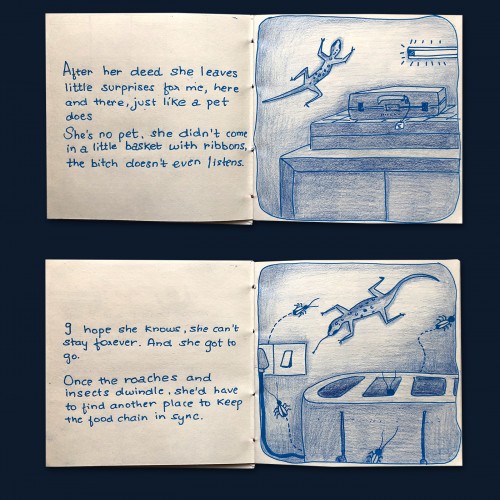 After her deed she leaves
little surprises for me, here
and there, just like a pet
does
She's no pet, she didn't come
in a little basket with ribbons,
the bitch doesn't even listens.
I hope she knows, she can't
stay forever. And she got to
go.
Once the roaches and
insects dwindle, she'd have
to find another place to keep
the food chain in sync.